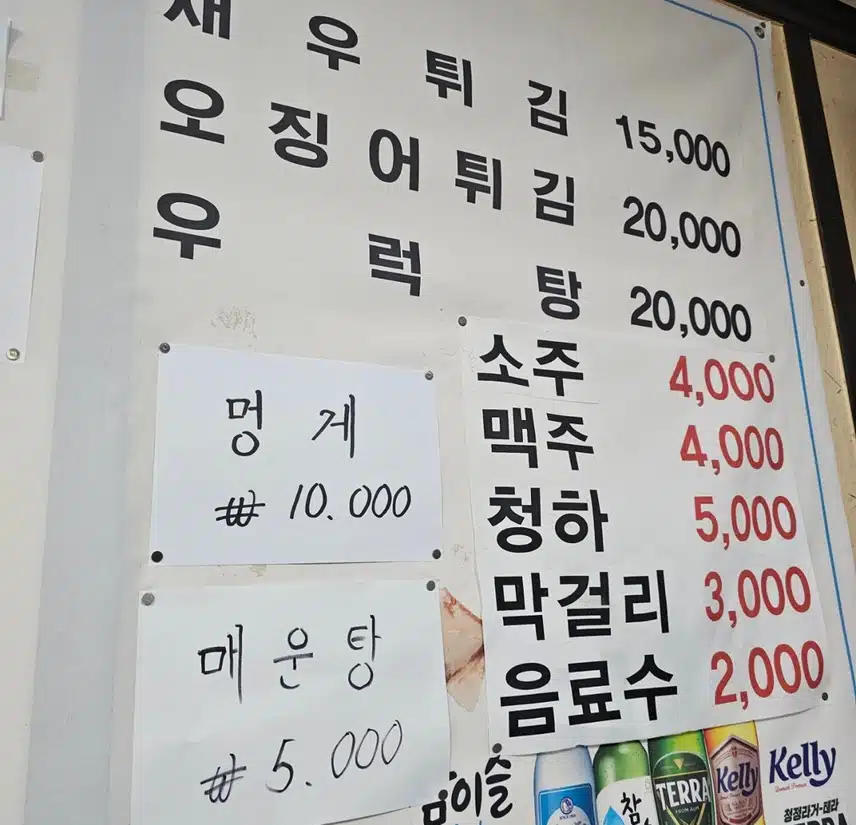 새우튀김 15,000
오징어튀김 20,000
우럭탕 20,000
소주 4,000
맥주 4,000
청하 5,000
막걸리 3,000
음료수 2,000
멍게
₩ 10.000
매운탕
₩ 5.000
이슬
참
TERRA
Kelly
Kelly
청정라거-테라